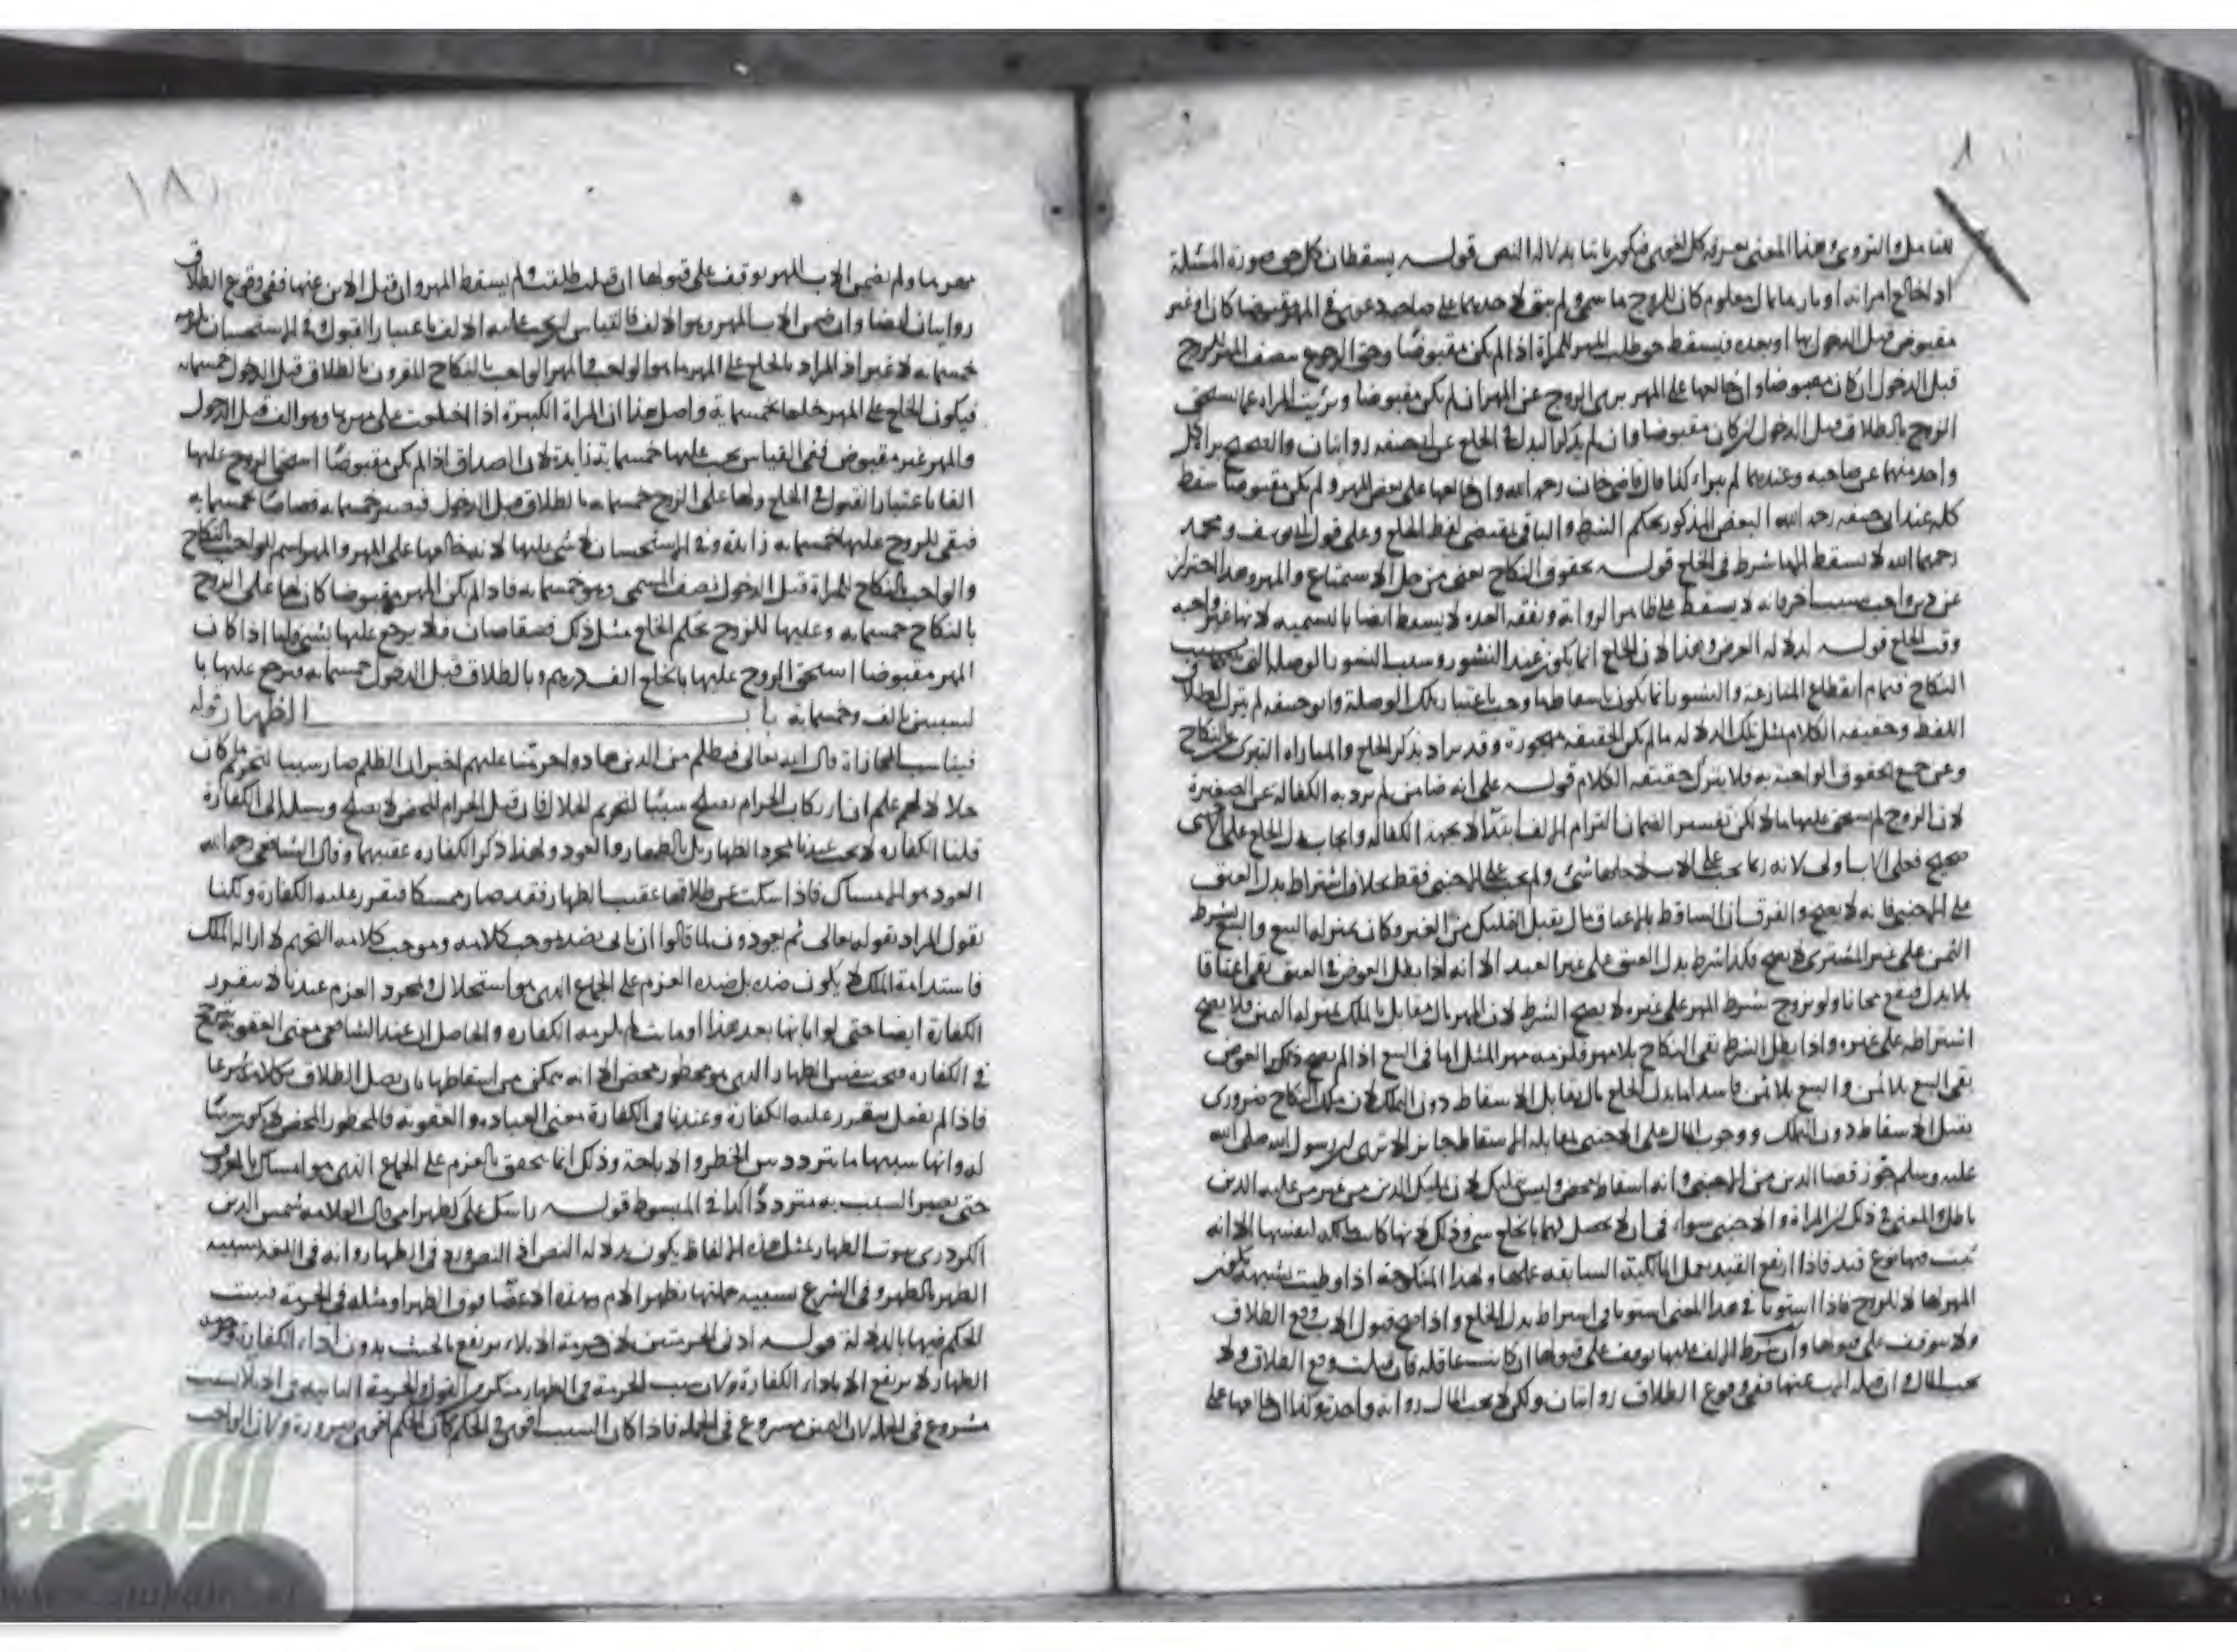 للتأمل والتروي وهذا المعنى يعرفه كل لغوي فيكون ثابتا بدلالة النص قوله يسقطان كل حق صورة المسئلة
اذا خالع امراته او بارها بمال معلوم كان للزوج ما سمى ولم يبق لاحدهما على صاحبه دعوى في المهر مقبوضا كان او غير
مقبوض قبل الدخول بها او بعده فيسقط حق طلب المهر للمراة اذا لم يكن مقبوضا وحق الرجوع بنصف المهر للزوج
قبل الدخول ان كان مقبوضا وان خالعها على المهر برئ الزوج عن المهر ان لم يكن مقبوضا وبرئت المراة عما يستحق
الزوج بالطلاق قبل الدخول ان كان مقبوضا وان لم يذكر البدل في الخلع عن ابي حنيفه روايتان والصحيح براة كل
واحد منهما عن صاحبه وعندهما لم يبراء كذا قال قاضي خان رحمه الله وان خالعها على بعض المهر ولم يكن مقبوضا سقط
كله عند ابي حنيفه رحمه الله البعض المذكور بحكم الشرط والباقي بمقتضى لفظ الخلع وعلى قول ابي يوسف ومحمد
رحمهما الله لا يسقط الا ما شرط في الخلع قوله بحقوق النكاح يعني من حل الاستمتاع والمهر وهذا احتراز
عن دين واجب بسبب اخر فانه لا يسقط على ظاهر الرواية ونفقة العدة لا يسقط ايضا بالتسمية لانها غير واجبه
وقت الخلع قوله لدلالة الغرض وهذا لان الخلع انما يكون عند النشوز وسبب النشوز الوصلة التي بسبب
النكاح فتمام انقطاع المنازعة والنشوز انما يكون باسقاط ما وجب باعتبار تلك الوصلة وابو حنيفه لم يترك اطلاق
اللفظ وحقيقة الكلام مثل تلك الدلالة ما لم يكن الحقيقة مهجورة وقد يراد بذكر الخلع والمباراة التبري عن النكاح
وعن جميع الحقوق الواجبة به فلا يترك حقيقة الكلام قوله على انه ضامن لم يرد به الكفالة عن الصغيرة
لان الزوج لم يستحق عليها مالا لكن تفسير الضمان التزام الالف ابتداء لا بجهة الكفالة وايجاب بدل الخلع على الاجنبي
صحيح فعلى الاب اولى لانه ربما يجب على الاب لاجلها شئ ولم يجب على الاجنبي فقط بخلاف اشتراط بدل العتق
على الاجنبي فانه لا يصح والفرق ان الساقط بالاعتاق مال يقبل التمليك من الغير وكان بمنزلة البيع والبيع بشرط
الثمن على غير المشتري لا يصح فكذا شرط بدل العتق على غير العبد الا انه اذا بطل العوض في العتق بقي اعتاقا
بلا بدل فيقع مجانا ولو تزوج بشرط المهر على غيره لا يصح الشرط لان المهر مال مقابل بالملك بمنزلة الثمن فلا يصح
اشتراطه على غيره واذا بطل الشرط بقي النكاح بلا مهر فلزمه مهر المثل اما في البيع اذا لم يصح ذكر العوض
بقي البيع بلا ثمن والبيع بلا ثمن فاسد اما بدل الخلع مال يقابل الاسقاط دون التملك لان ملك النكاح ضروري
يقبل الاسقاط دون التملك ووجوب المال على الاجنبي بمقابلة الاسقاط جائز الا ترى ان رسول الله صلى الله
عليه وسلم جوز قضا الدين من الاجنبي وانه اسقاط محض وليس بتمليك لان تمليك الدين من غير من عليه الدين
باطل والمعنى في ذلك ان المراة والاجنبي سواء في ان لا يحصل لهما بالخلع شئ وذلك لانها كانت مالكة لنفسها الا انه
ثبت فيها نوع قيد فاذا ارتفع القيد يعمل المالكية السابقة عليها ولهذا المنكوحة اذا وطئت بشبهة يكون
المهر لها لا للزوج فاذا استويا في هذا المعنى استويا في اشتراط بدل الخلع واذا صح قبول الاب وقع الطلاق
ولا يتوقف على قبولها وان شرط الالف عليها توقف على قبولها ان كانت عاقلة فان قبلت وقع الطلاق ولا
يجب المال وان قبله الاب عنها ففي وقوع الطلاق روايتان ولكن لا يجب المال رواية واحدة وكذا ان خالعها على
مهرها ولم يضمن الاب المهر توقف على قبولها ان قبلت طلقت ولم يسقط المهر وان قبل الاب عنها ففي وقوع الطلاق
روايتان ايضا وان ضمن الاب المهر وهو الالف فالقياس ان يجب عليه الالف باعتبار القبول وفي الاستحسان يلزمه
خمسمايه لا غير اذ المراد بالخلع على المهر ما هو الواجب والمهر الواجب بالنكاح المقرون بالطلاق قبل الدخول خمسمايه
فيكون الخلع على المهر خلعا بخمسماية واصل هذا ان المراة الكبيرة اذا اختلعت على مهرها وهو الف قبل الدخول
والمهر غير مقبوض ففي القياس يجب عليها خمسماية زايدة لان الصداق اذا لم يكن مقبوضا استحق الزوج عليها
الفا باعتبار القبول في الخلع ولها على الزوج خمسمايه بالطلاق قبل الدخول فيصير خمسمايه قصاصا بخمسمايه
فبقي للزوج عليها خمسمايه زايدة وفي الاستحسان لا شئ عليها لانه خالعها على المهر والمهر اسم للواجب بالنكاح
والواجب بالنكاح للمراة قبل الدخول نصف المسمى وهو خمسمايه فاذا لم يكن المهر مقبوضا كان لها على الزوج
بالنكاح خمسمايه وعليها للزوج بحكم الخلع مثل ذلك فيتقاصان فلا يرجع عليها بشئ واما اذا كان
المهر مقبوضا استحق الزوج عليها بالخلع الف درهم وبالطلاق قبل الدخول خمسمايه ويرجع عليها با
لسببين بالف وخمسمايه باب الظهار قوله
فيناسب المجازاة قال الله تعالى فبظلم من الذين هادوا حرمنا عليهم اخبر ان الظلم صار سببا لتحريم ما كان
حلالا لهم علم ان ارتكاب الحرام يصلح سببا لتحريم الحلال فان قيل الحرام المحض لا يصلح وسيلة الى الكفارة
قلنا الكفاره لا يجب عندنا بمجرد الظهار بل بالظهار والعود ولهذا ذكر الكفاره عقيبهما وقال الشافعي رحمه الله
العود هو الامساك فاذا سكت عن طلاقها عقيب الظهار فقد صار ممسكا فيتقرر عليه الكفارة ولكنا
نقول المراد بقوله تعالى ثم يعودون لما قالوا ان ياتي بضد موجب كلامه وموجب كلامه التحريم لا ازالة الملك
فاستدامة الملك لا يكون ضده بل ضده العزم على الجماع الذي هو استحلال وبمجرد العزم عندنا لا يتقرر
الكفارة ايضا حتى لو ابانها بعد هذا او ماتت لم يلزمه الكفاره والحاصل ان عند الشافعي معنى العقوبة يترجح
في الكفاره فيجب بنفس الظهار الذي هو محظور محض الا انه يمكن من اسقاطها بان يصل الطلاق بكلامه شرعا
فاذا لم يفعل يتقرر عليه الكفارة وعندنا في الكفارة معنى العباده والعقوبه فالمحظور المحض لا يكون سببا
له وانما سببها ما يتردد بين الحظر والاباحة وذلك انما يتحقق بالعزم على الجماع الذي هو امساك بالمعروف
حتى يصير السبب به مترددا كذا في المبسوط قوله راسك علي كظهر امي قال العلامه شمس الدين
الكردري ثبوت الظهار بمثل هذه الالفاظ يكون بدلالة النص اذ النص ورد في الظهار وانه في اللغة تشبيه
الظهر بالظهر وفي الشرع تشبيه حليلته بظهر الام وهذه الاعضا فوق الظهر او مثله في الحرمة فيثبت
الحكم فيها بالدلالة قوله ادنى الحرمتين لان حرمة الايلاء يرتفع بالحنث بدون اداء الكفارة وحرمة
الظهار لا يرتفع الا باداء الكفارة ولان سبب الحرمة في الظهار منكر من القول والحرمة الثابتة في الايلا بسبب
مشروع في الجملة لان اليمين مشروع في الجملة فاذا كان السبب اقوى في الحكم كان الحكم اقوى ضرورة ولان الواجب